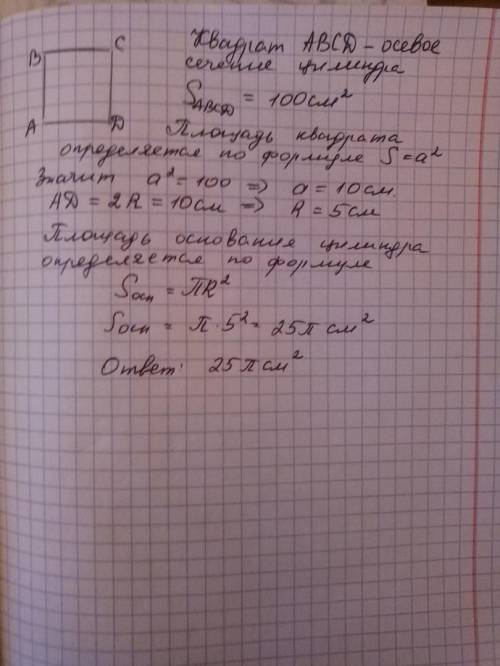 Квадрат ABCD - осевое
сечение цилиндра
S_ABCD = 100 см²
B C
A D
Площадь квадрата
определяется по формуле S = a²
Значит a² = 100 => a = 10 см.
AD = 2R = 10 см => R = 5 см
Площадь основания цилиндра
определяется по формуле
Sосн = πR²
Sосн = π·5² = 25π см²
Ответ: 25π см²